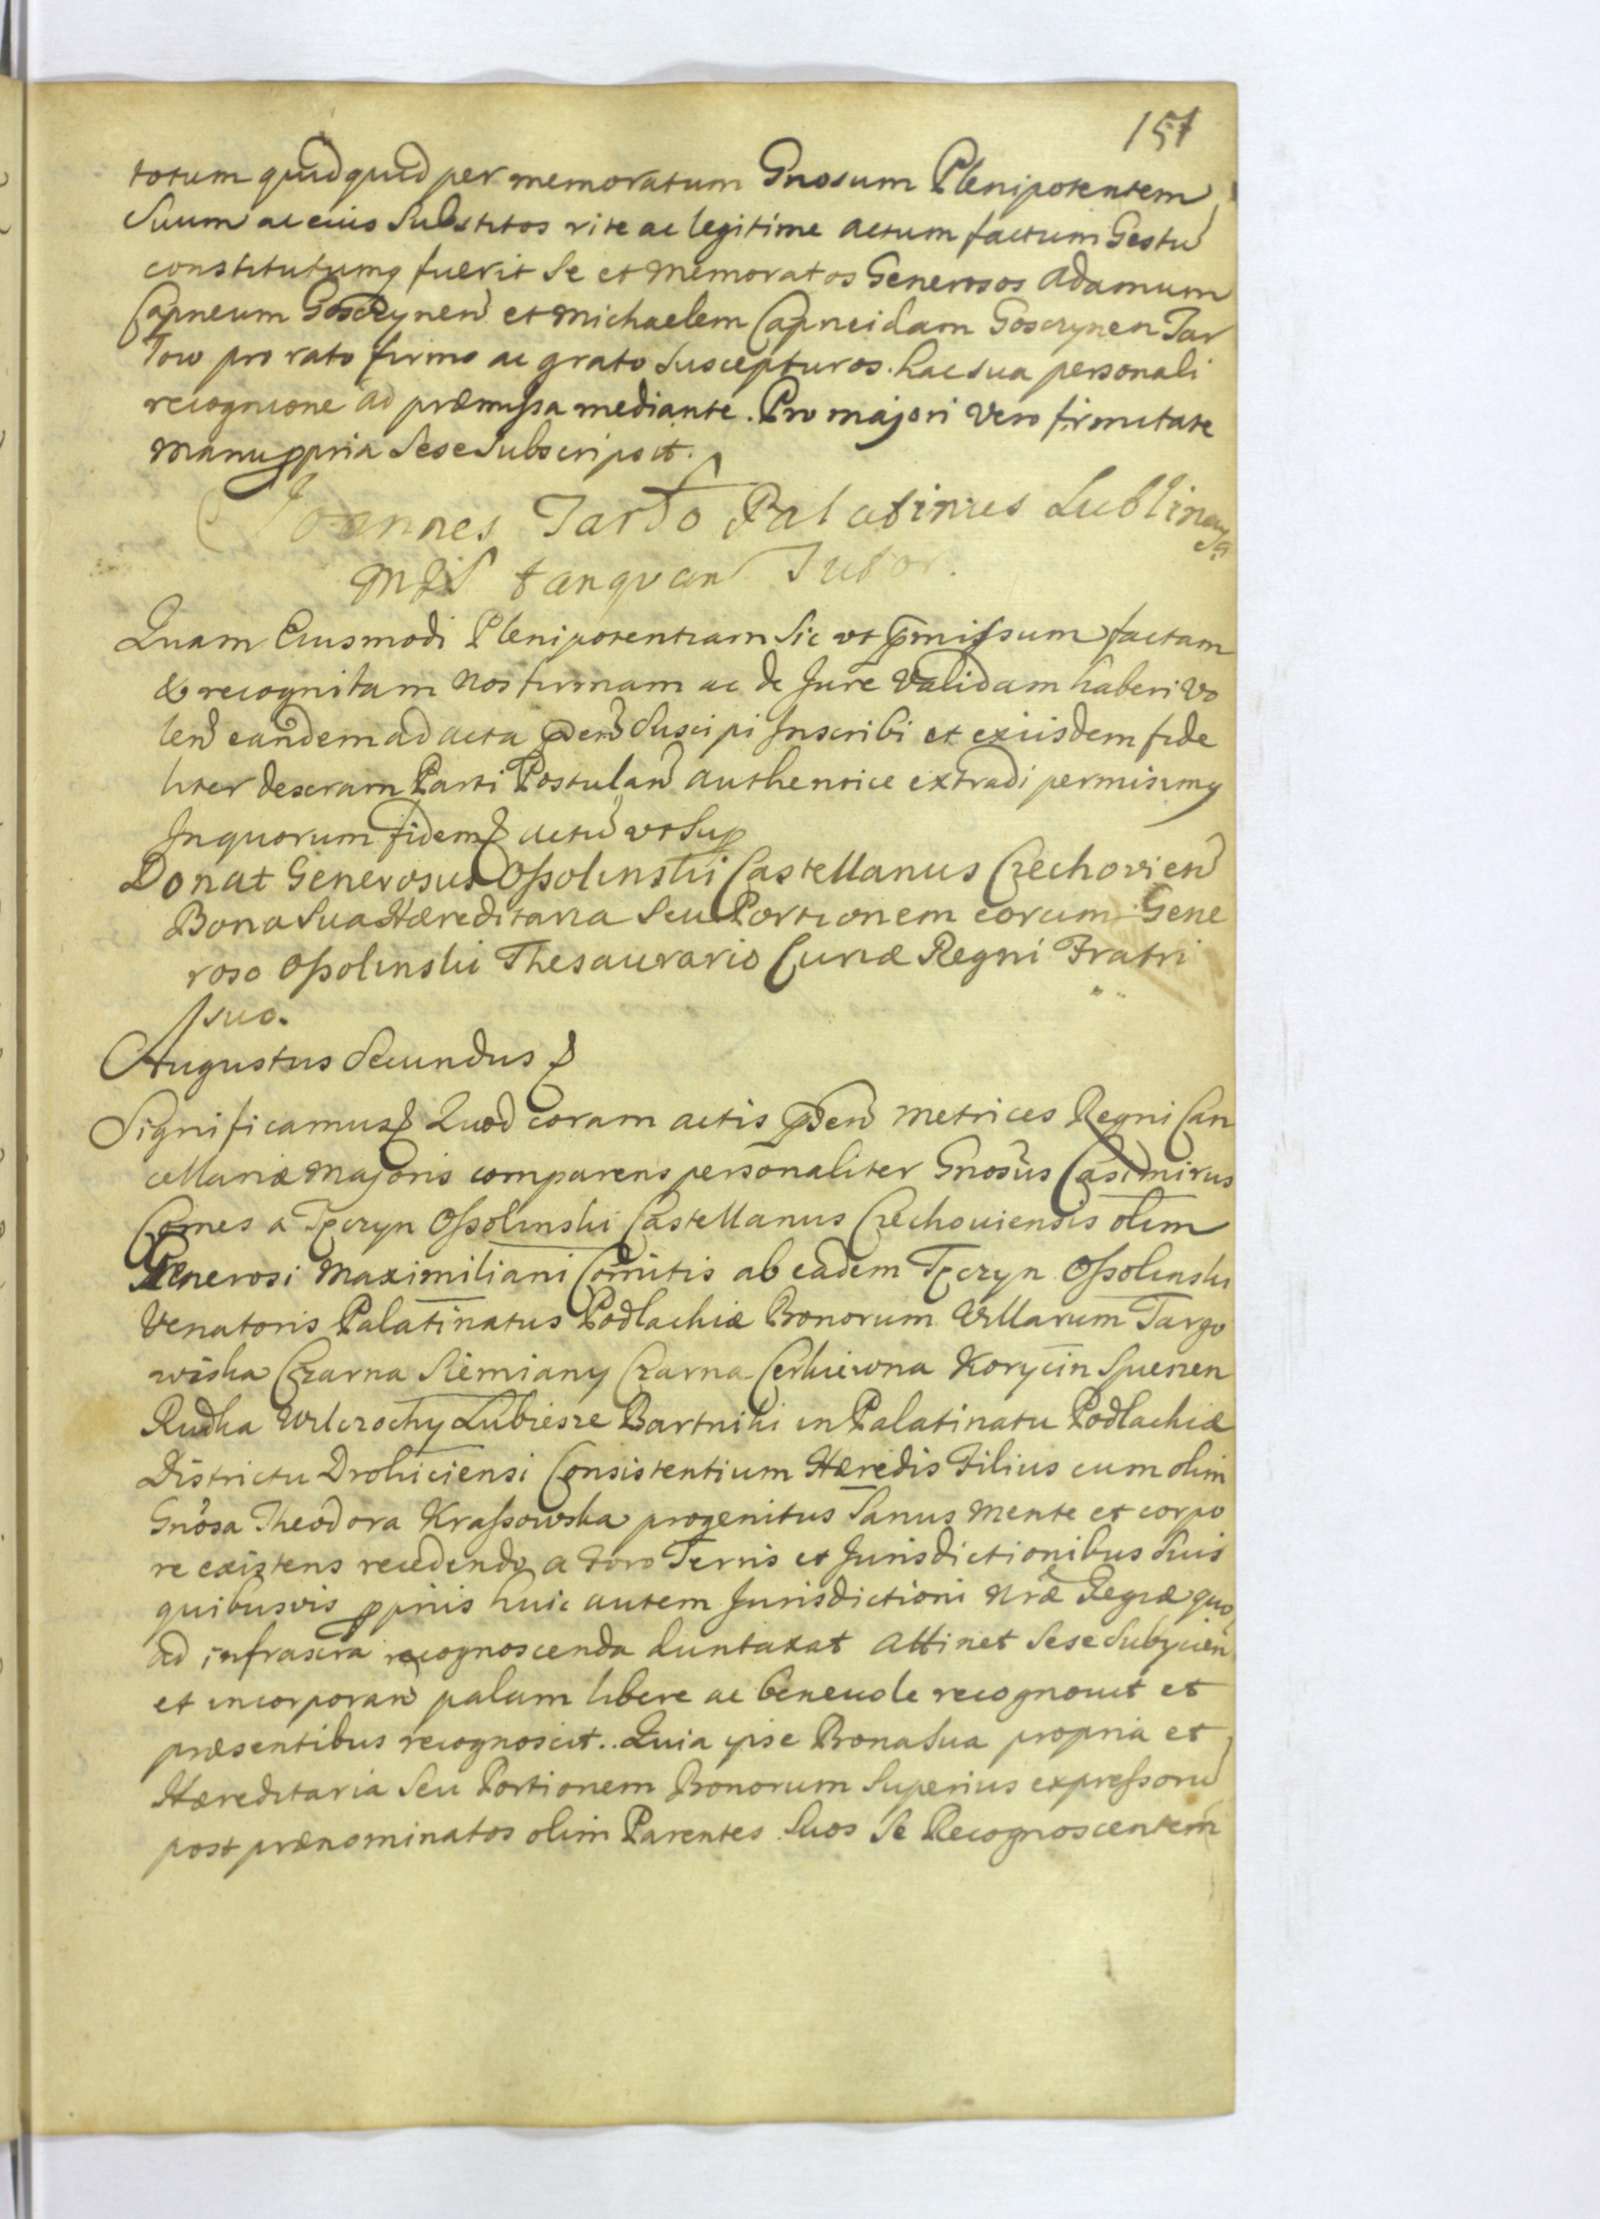 151
totum quidquid per memoratum Gnosum Plenipotentem
Suum ac eius Substitos rite ac legitime actum factum Gestu
constitutumq fuerit Se et Memoratos Generosos Adamum
Capneum Goscrynen et Michaelem Capneidam Goscrynen Tar
Tow pro rato firmo ac grato Suscepturos. hac sua personali
recognicone ad præmissa mediante. Pro majori Vero firmitate
Manu ppria Sese Subscripsit.
Joannes Tarło Palatinus Lublinen
tanquam Tutor.
Quam Eiusmodi Plenipotentiam Sic vt pmissum factam
& recognitam Nos firmam ac de Jure Validam haberi Vo
len eandem ad acta pden Suscipi Inscribi et exiisdem fide
liter descram Parti Postulan authentice extradi permisimq
In quorum fidem actu vt Sup
Donat Generosus Ossolinski Castellanus Czechovien
Bona Sua Hæreditaria Seu Portionem eorum Gene
roso Ossolinski Thesaurario Curiæ Regni Fratri
suo.
Augustus Secundus
Significamus Quod coram actis pden Metrices Regni Can
cellariæ Majoris comparens personaliter Gnosus Casimirus
Comes a Tęczyn Ossolinski Castellanus Czechoviensis olim
Generosi Maximiliani Comitis ab eadem Tęczyn Ossolinski
Venatoris Palatinatus Podlachiæ Bonorum Villarum Targo
wiska Czarna Siemiany Czarna Cerkiewna Korycin Spieszen
Rudka Wilczochy Lubiesze Bartniki in Palatinatu Podlachiæ
Districtu Drohiciensi Consistentium Hæredis Filius cum olim
Gnosa Theodora Krassowska progenitus Sanus Mente et corpo
re existens recedendo a foro Terris et Jurisdictionibus Suis
quibusvis ppriis huic autem Jurisdictioni Nræ Regiæ quo
ad infrascra recognoscenda duntaxat attinet Sese Subycien
et incorporan palam libere ac benevole recognovit et
præsentibus recognoscit. Quia ipse Bona Sua propria et
Hæreditaria Seu Portionem Bonorum Superius expressoru
post prænominatos olim Parentes Suos Se Recognoscentem